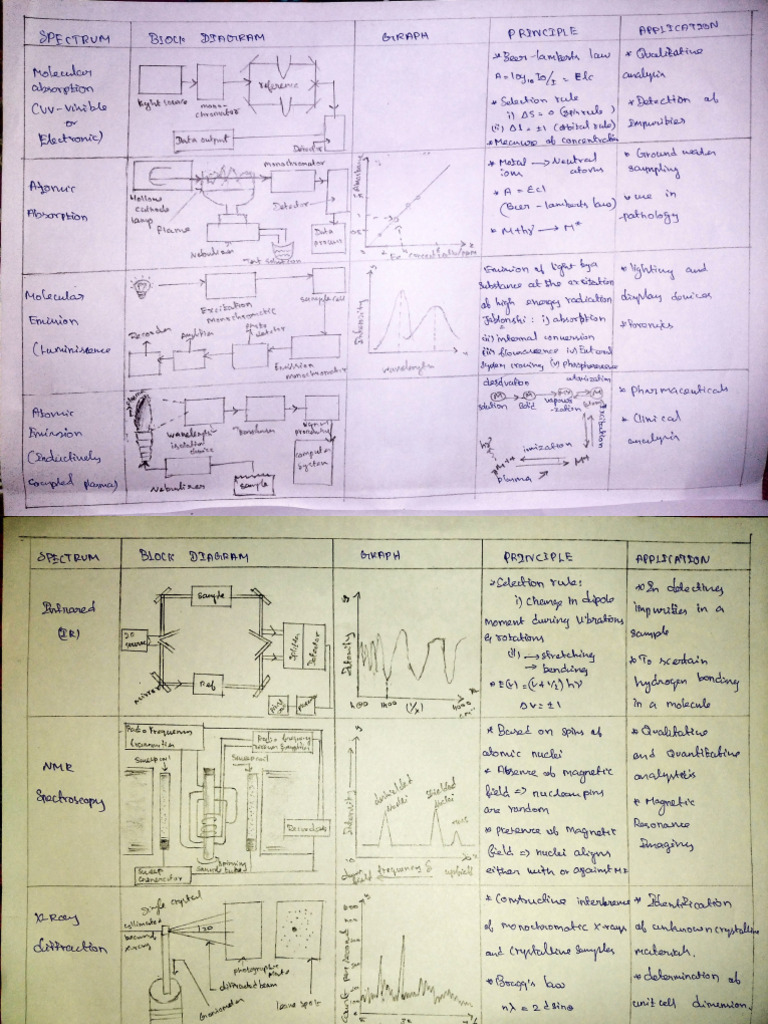 SPECTRUM BLOCK DIAGRAM GRAPH PRINCIPLE APPLICATION
Molecular
absorption
(UV-Visible
or
Electronic)
light source
mono-
chromator
reference
Data output
Detector
* Beer-lamberts law
A = log10 I0/I = Elc
* Selection rule
i) ΔS = 0 (spin rule)
(ii) Δl = ±1 (orbital rule)
* Measure of concentration
* Qualitative
analysis
* Detection of
Impurities
Atomic
Absorption
Hollow
cathode
lamp
Flame
monochromator
Detector
Data
process
Nebulizer
Test solution
Absorbance
* Metal → Neutral
ions atoms
* A = Ecl
(Beer-lamberts law)
* M + hν → M*
* Ground water
sampling
* use in
pathology
Molecular
Emission
(Luminiscence
Excitation
monochromatic
sample cell
Recorder
Amplifier
Photo
detector
Emission
monochromator
Intensity
wavelength
Emission of light by a
substance at the excitation
of high energy radiation
Jablonski : i) absorption
ii) internal conversion
iii) flourescence iv) External
System crossing (v) phosphorescence
* lighting and
display devices
* Forensics
Atomic
Emission
(Inductively
coupled plasma)
wavelength
isolation
device
Transducer
computer
system
Nebulizer
Sample
desolvation atomization
solution
Solid
vapour
-ization
ionization
plasma
* Pharmaceuticals
* Clinical
analysis
SPECTRUM BLOCK DIAGRAM GRAPH PRINCIPLE APPLICATION
Infrared
(IR)
Sample
IR
source
Ref
mirror
Detector
Intensity
* Selection rule:
i) Change in dipole
moment during vibrations
& rotations
ii) → stretching
→ bending
* E(v) = (v + 1/2) hν
Δv = ±1
* In detecting
impurities in a
sample
* To ascertain
hydrogen bonding
in a molecule
NMR
Spectroscopy
Radio Frequency
Transmitter
Sweep coil
Sweep coil
Recorder
Sweep
Generator
Spinning
sample tube
Intensity
deshielded
nuclei
shielded
nuclei
TMS
frequency
upfield
* Based on spins of
atomic nuclei
* Absence of magnetic
field => nuclear spins
are random
* presence of Magnetic
field => nuclei aligns
either with or against MF
* Qualitative
and Quantitative
analysis
* Magnetic
Resonance
Imaging
X-Ray
diffraction
single crystal
collimated
beam of
x-rays
2θ
photographic
Plate
diffracted beam
Goniometer
laue spots
Count per second
* Constructive interference
of monochromatic x-rays
and crystalline samples
* Bragg's law
nλ = 2d sinθ
* Identification
of unknown crystalline
materials.
* determination of
unit cell dimension.